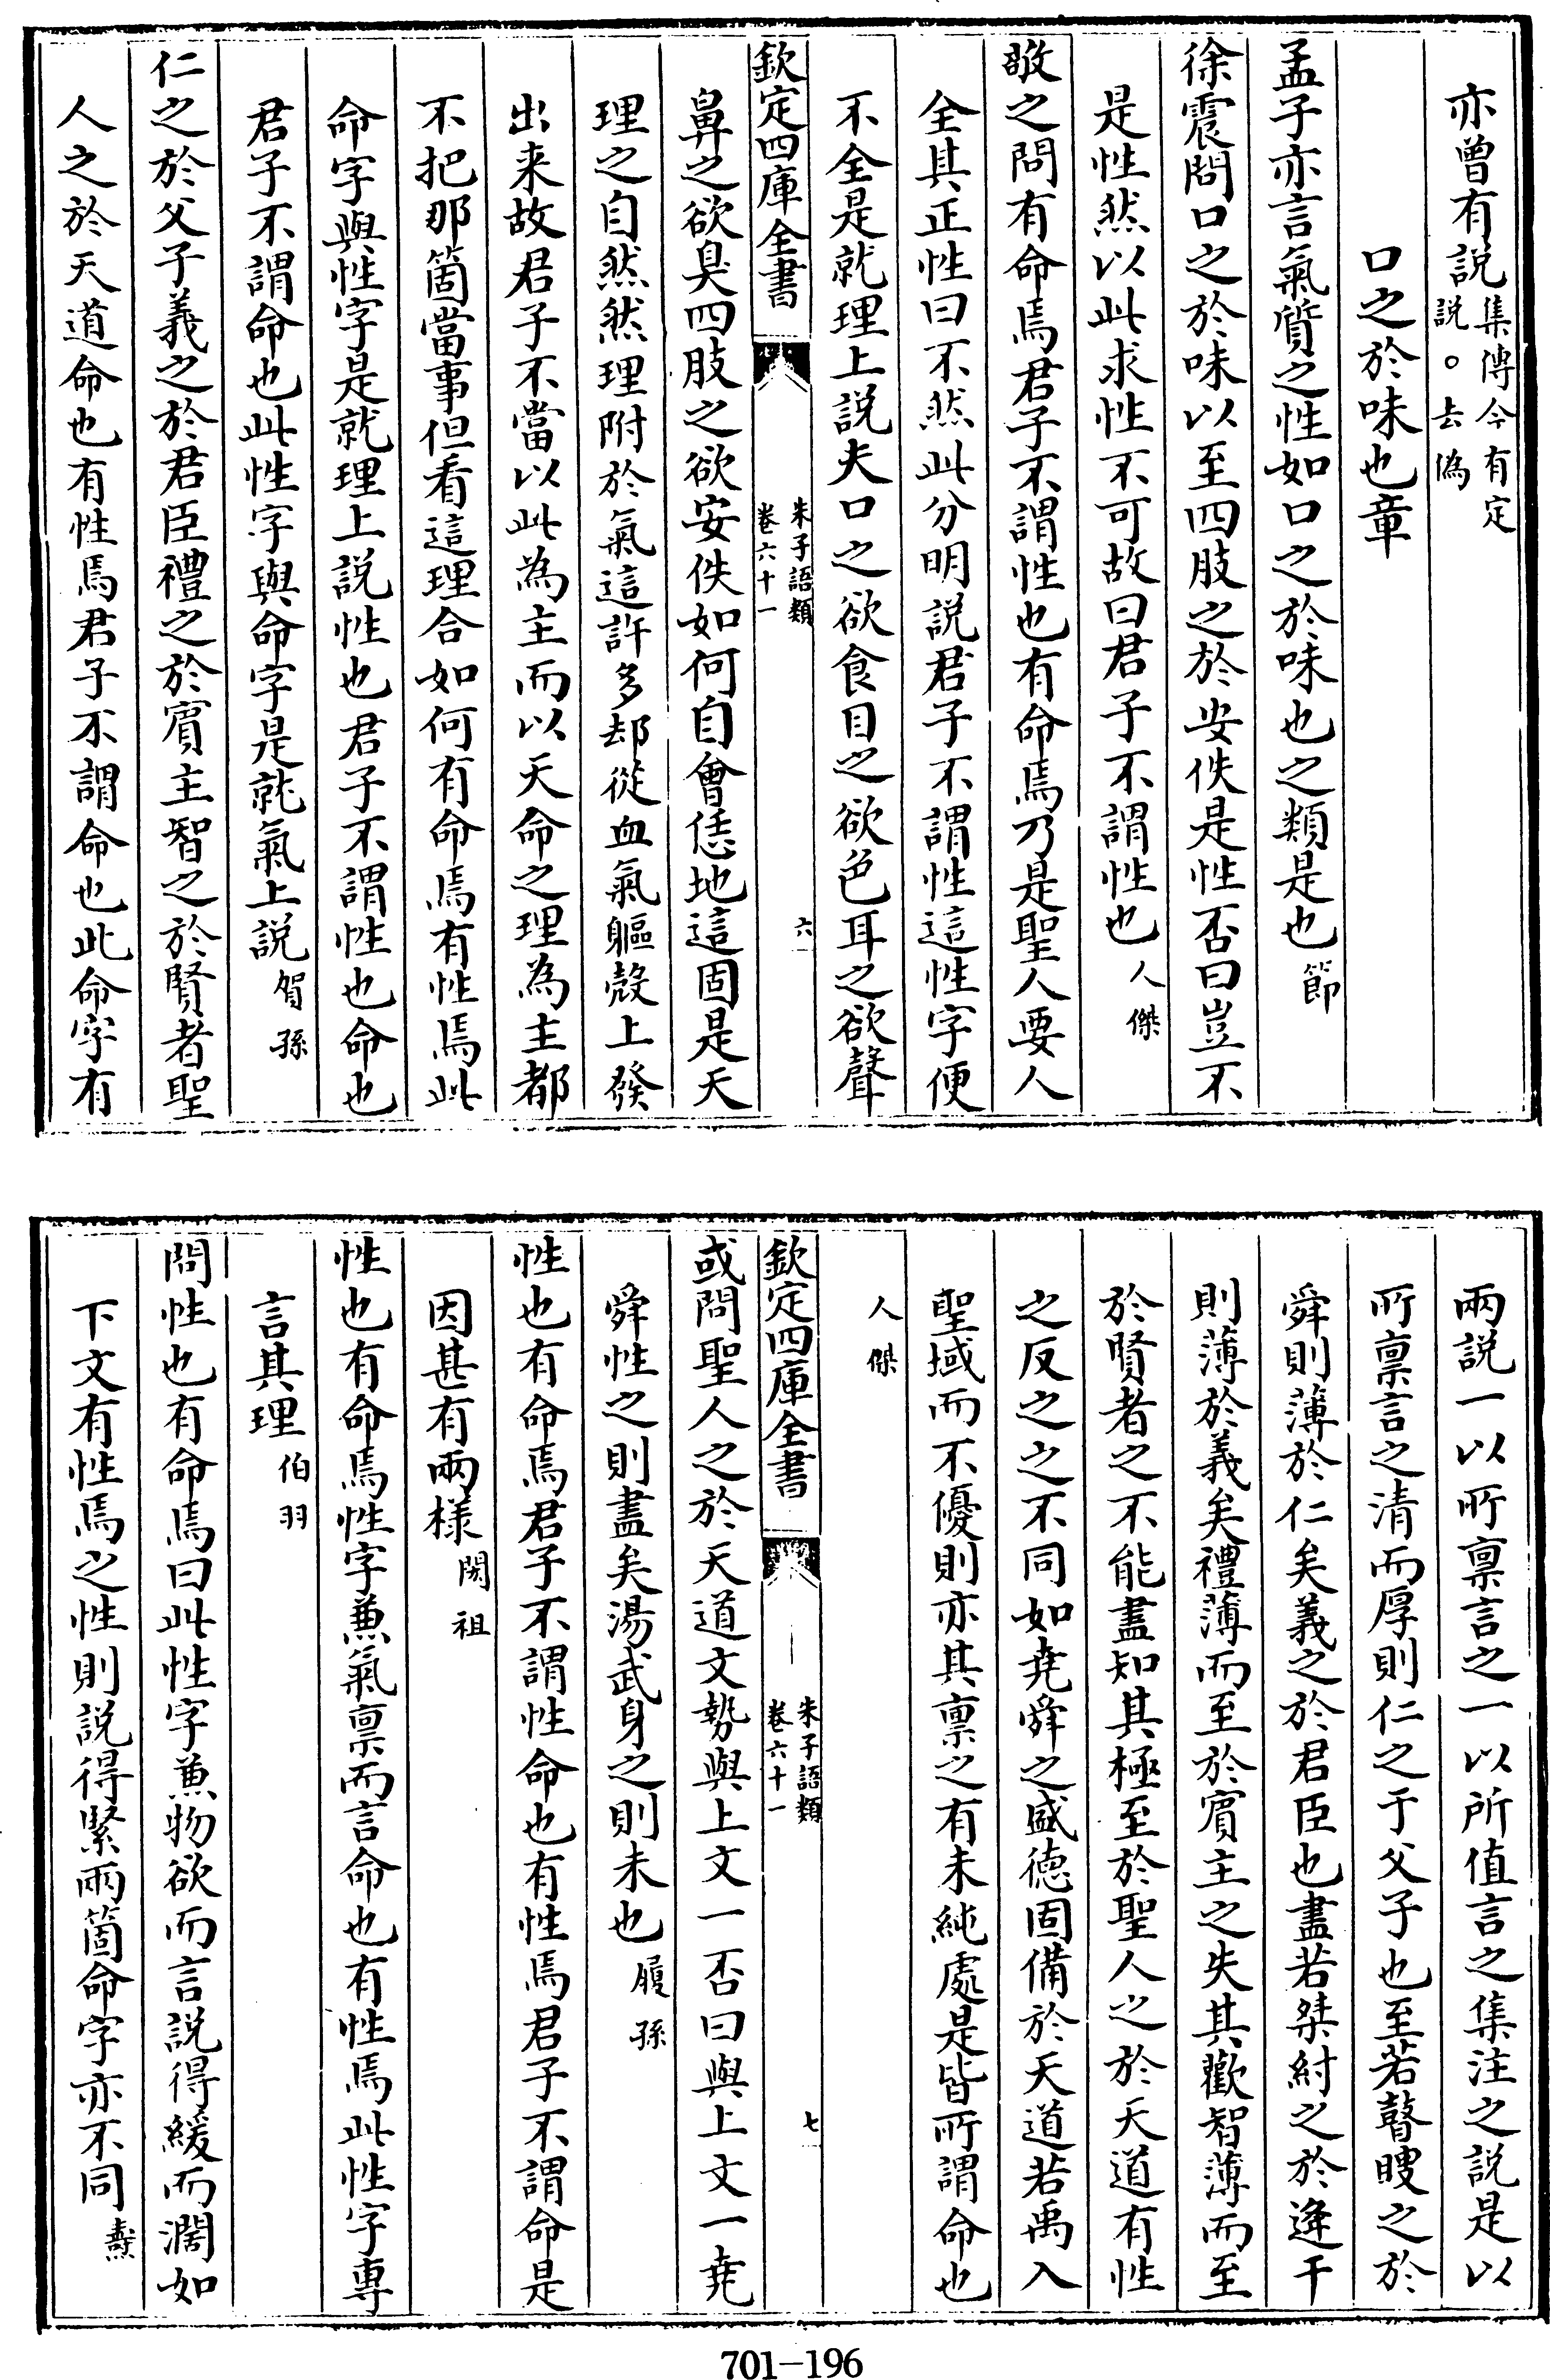 亦曾有説集傳今有定説○去偽
口之於味也章
孟子亦言氣質之性如口之於味也之類是也節
徐震問口之於味以至四肢之於安佚是性否曰豈不
是性然以此求性不可故曰君子不謂性也人傑
敬之問有命焉君子不謂性也有命焉乃是聖人要人
全其正性曰不然此分明説君子不謂性這性字便
不全是就理上説夫口之欲食目之欲色耳之欲聲
欽定四庫全書 朱子語類卷六十一 六
鼻之欲臭四肢之欲安佚如何自會恁地這固是天
理之自然然理附於氣這許多却從血氣軀殻上發
出来故君子不當以此為主而以天命之理為主都
不把那箇當事但看這理合如何有命焉有性焉此
命字與性字是就理上説性也君子不謂性也命也
君子不謂命也此性字與命字是就氣上説賀孫
仁之於父子義之於君臣禮之於賓主智之於賢者聖
人之於天道命也有性焉君子不謂命也此命字有
兩説一以所禀言之一以所值言之集注之説是以
所禀言之清而厚則仁之于父子也至若瞽瞍之於
舜則薄於仁矣義之於君臣也盡若桀紂之於逄干
則薄於義矣禮薄而至於賓主之失其歡智薄而至
於賢者之不能盡知其極至於聖人之於天道有性
之反之之不同如堯舜之盛德固備於天道若禹入
聖域而不優則亦其禀之有未純處是皆所謂命也
人傑
欽定四庫全書 朱子語類卷六十一 七
或問聖人之於天道文勢與上文一否曰與上文一堯
舜性之則盡矣湯武身之則未也履孫
性也有命焉君子不謂性命也有性焉君子不謂命是
因甚有兩様閎祖
性也有命焉性字兼氣禀而言命也有性焉此性字專
言其理伯羽
問性也有命焉曰此性字兼物欲而言説得緩而濶如
下文有性焉之性則説得緊兩箇命字亦不同燾
701-196